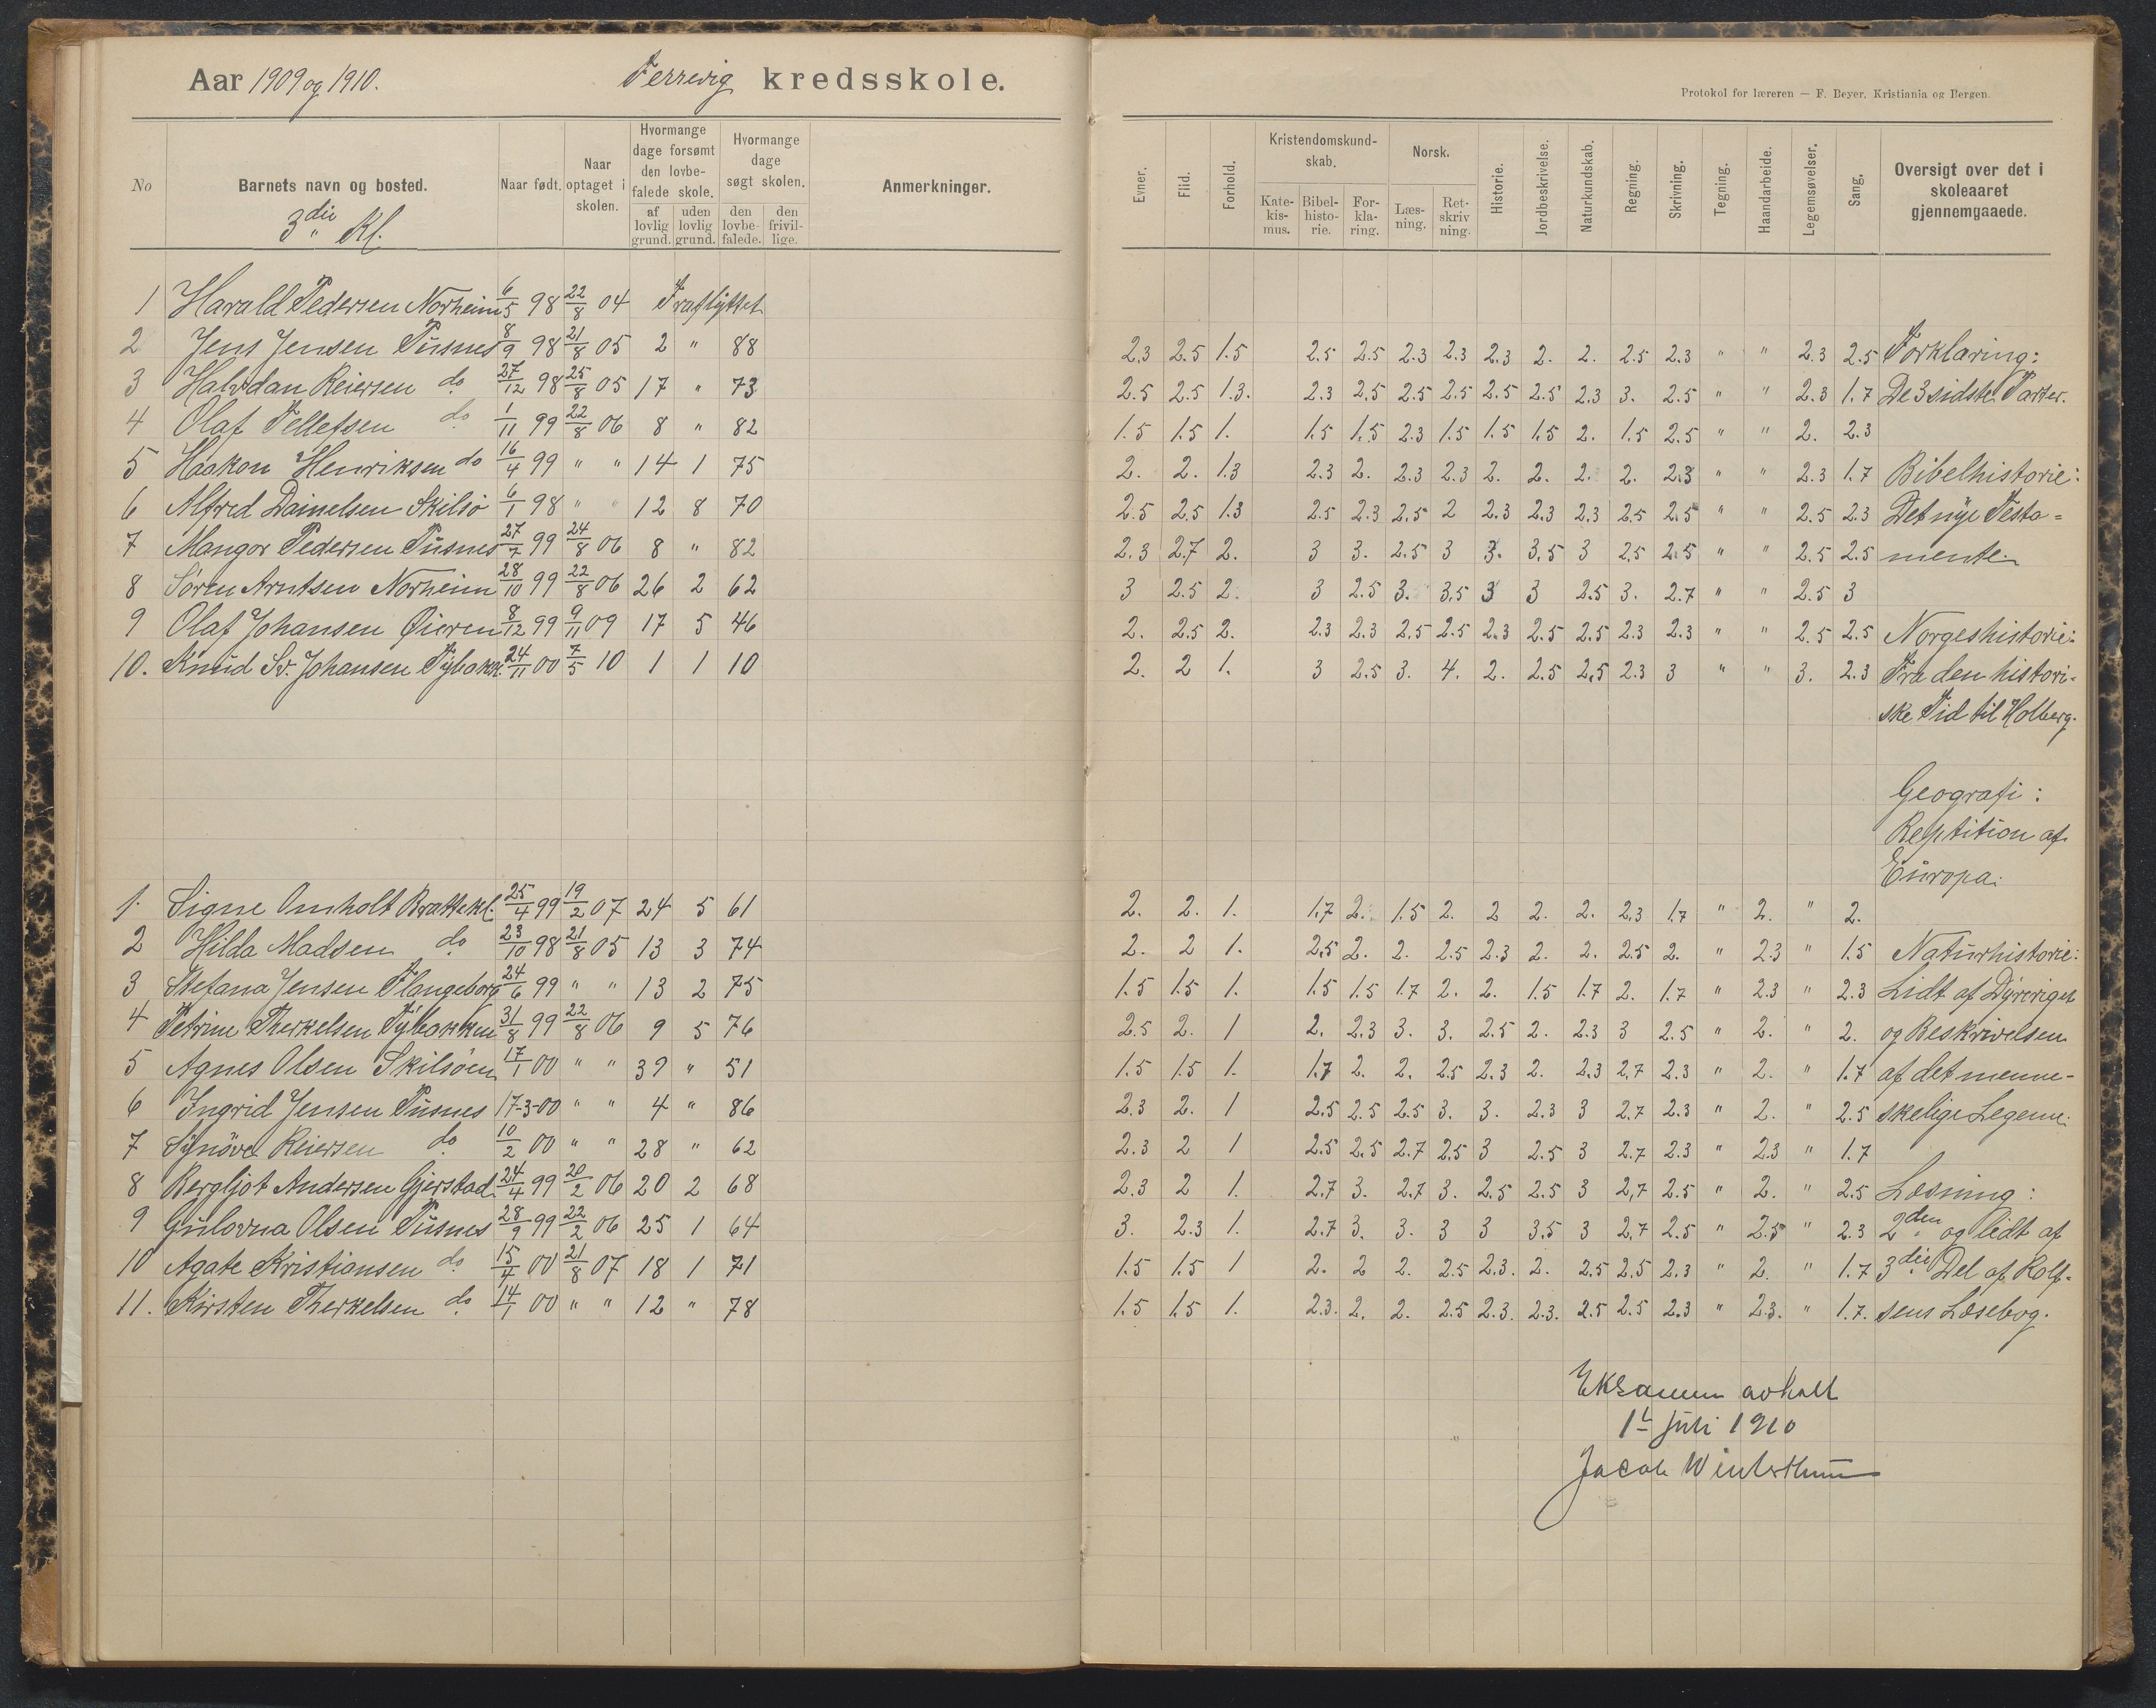 Aar 1909 og 1910. Færevig kredsskole.
No Barnets navn og bosted. Naar født. Naar optaget i skolen. Hvormange dage forsømt den lovbefalede skole. af lovlig grund. uden lovlig grund. Hvormange dage søgt skolen. den lovbefalede. den frivillige. Anmerkninger.
3die Kl.
1 Harald Pedersen Norheim 6/5 98 22/8 04 Fraflyttet
2 Jens Jensen Pusnes 8/9 98 21/8 05 2 " 88
3 Halvdan Reiersen do 27/12 98 25/8 05 17 " 73
4 Olaf Tellefsen do 1/11 99 22/8 06 8 " 82
5 Haakon Henriksen do 16/4 99 " " 14 1 75
6 Alfred Dainelsen Skilsö 6/1 98 " " 12 8 70
7 Mangor Pedersen Pusnes 27/7 99 24/8 06 8 " 82
8 Sören Arntsen Norheim 28/10 99 22/8 06 26 2 62
9 Olaf Johansen Øieren 8/12 99 9/11 09 17 5 46
10. Knud Sv. Johansen Tybakk. 24/11 00 7/5 10 1 1 10
1. Signe Omholt Brattekl. 25/4 99 19/2 07 24 5 61
2 Hilda Madsen do 23/10 98 21/8 05 13 3 74
3 Stefana Jensen Flangeborg 24/6 99 " " 13 2 75
4 Petrine Therkelsen Tybakken 31/8 99 22/8 06 9 5 76
5 Agnes Olsen Skilsöen 17/1 00 " " 39 " 51
6 Ingrid Jensen Pusnes 17-3-00 " " 4 " 86
7 Synöve Reiersen do 10/2 00 " " 28 " 62
8 Bergljot Andersen Gjerstad 24/4 99 20/2 06 20 2 68
9 Gulovna Olsen Pusnes 28/9 99 22/2 06 25 1 64
10 Agate Kristiansen do 15/4 00 21/8 07 18 1 71
11. Kirsten Therkelsen do 14/1 00 " " 12 " 78
Protokol for læreren — F. Beyer, Kristiania og Bergen.
Evner. Flid. Forhold. Kristendomskundskab. Katekismus. Bibelhistorie. Forklaring. Norsk. Læsning. Retskrivning. Historie. Jordbeskrivelse. Naturkundskab. Regning. Skrivning. Tegning. Haandarbeide. Legemsøvelser. Sang. Oversigt over det i skoleaaret gjennemgaaede.
2.3 2.5 1.5 2.5 2.5 2.3 2.3 2.3 2. 2. 2.5 2.3 " " 2.3 2.5 Forklaring:
2.5 2.5 1.3. 2.3 2.5 2.5 2.5 2.5 2.5 2.3 3. 2.5 " " 2.3 1.7 De 3 sidste Parter.
1.5 1.5 1. 1.5 1.5 2.3 1.5 1.5 1.5 2. 1.5 2.5 " " 2. 2.3
2. 2. 1.3 2.3 2. 2.3 2.3 2. 2. 2. 2. 2.3 " " 2.3 1.7 Bibelhistorie:
2.5 2.5 1.3 2.5 2.3 2.5 2 2.3 2.3 2.3 2.5 2.5 " " 2.5 2.3 Det nye Testa=
2.3 2.7 2. 3 3. 2.5 3 3. 3.5 3 2.5 2.5 " " 2.5 2.5 mente.
3 2.5 2. 3 2.5 3. 3.5 3 3 2.5 3. 2.7 " " 2.5 3
2. 2.5 2. 2.3 2.3 2.5 2.5 2.3 2.5 2.5 2.3 2.3 " " 2.5 2.5 Norgeshistorie:
2. 2 1. 3 2.5 3. 4. 2. 2.5 2.5 2.3 3 " " 3. 2.3 Fra den histori-
ske Tid til Holberg.
Geografi:
Reptition af
Europa.
2. 2. 1. 1.7 2. 1.5 2. 2 2. 2. 2.3 1.7 " 2. " 2.
2. 2 1. 2.5 2. 2. 2.5 2.3 2. 2. 2.5 2. " 2.3 " 1.5 Naturhistorie:
1.5 1.5 1. 1.5 1.5 1.7 2. 2. 1.5 1.7 2. 1.7 " 2.3 " 2.3 Lidt af Dyreriget
2.5 2. 1 2. 2.3 3. 3. 2.5 2. 2.3 3 2.5 " 2. " 2. og Beskrivelsen
1.5 1.5 1. 1.7 2. 2. 2.5 2.3 2. 2.3 2.7 2.3 " 2. " 1.7 af det menne-
2.3 2. 1 2.5 2.5 2.5 3. 3. 2.3 3 2.7 2.3 " 2. " 2.5 skelige Legeme.
2.3 2 1 2.5 2.5 2.7 2.5 3 2.5 3 2.7 2.3 " 2.3 " 1.7
2.3 2 1. 2.7 3. 2.7 3. 2.5 2.5 3 2.7 2.5 " 2. " 2.5 Læsning:
3. 2.3 1. 2.7 3. 3. 3 3 3.5 3 2.7 2.5 " 2.5 " 2.3 2den og lidt af
1.5 1.5 1 2. 2 2. 2.5 2.3. 2. 2.5 2.5 2.3 " 2. " 1.7 3die Del af Rolf-
1.5 1.5 1. 2.3. 2. 2. 2.5 2.3. 2.3. 2.5 2.5 2.3 " 2.3. " 1.7. sens Læsebog.
Eksamen avholt
1t juli 1910
Jacob Winterthun